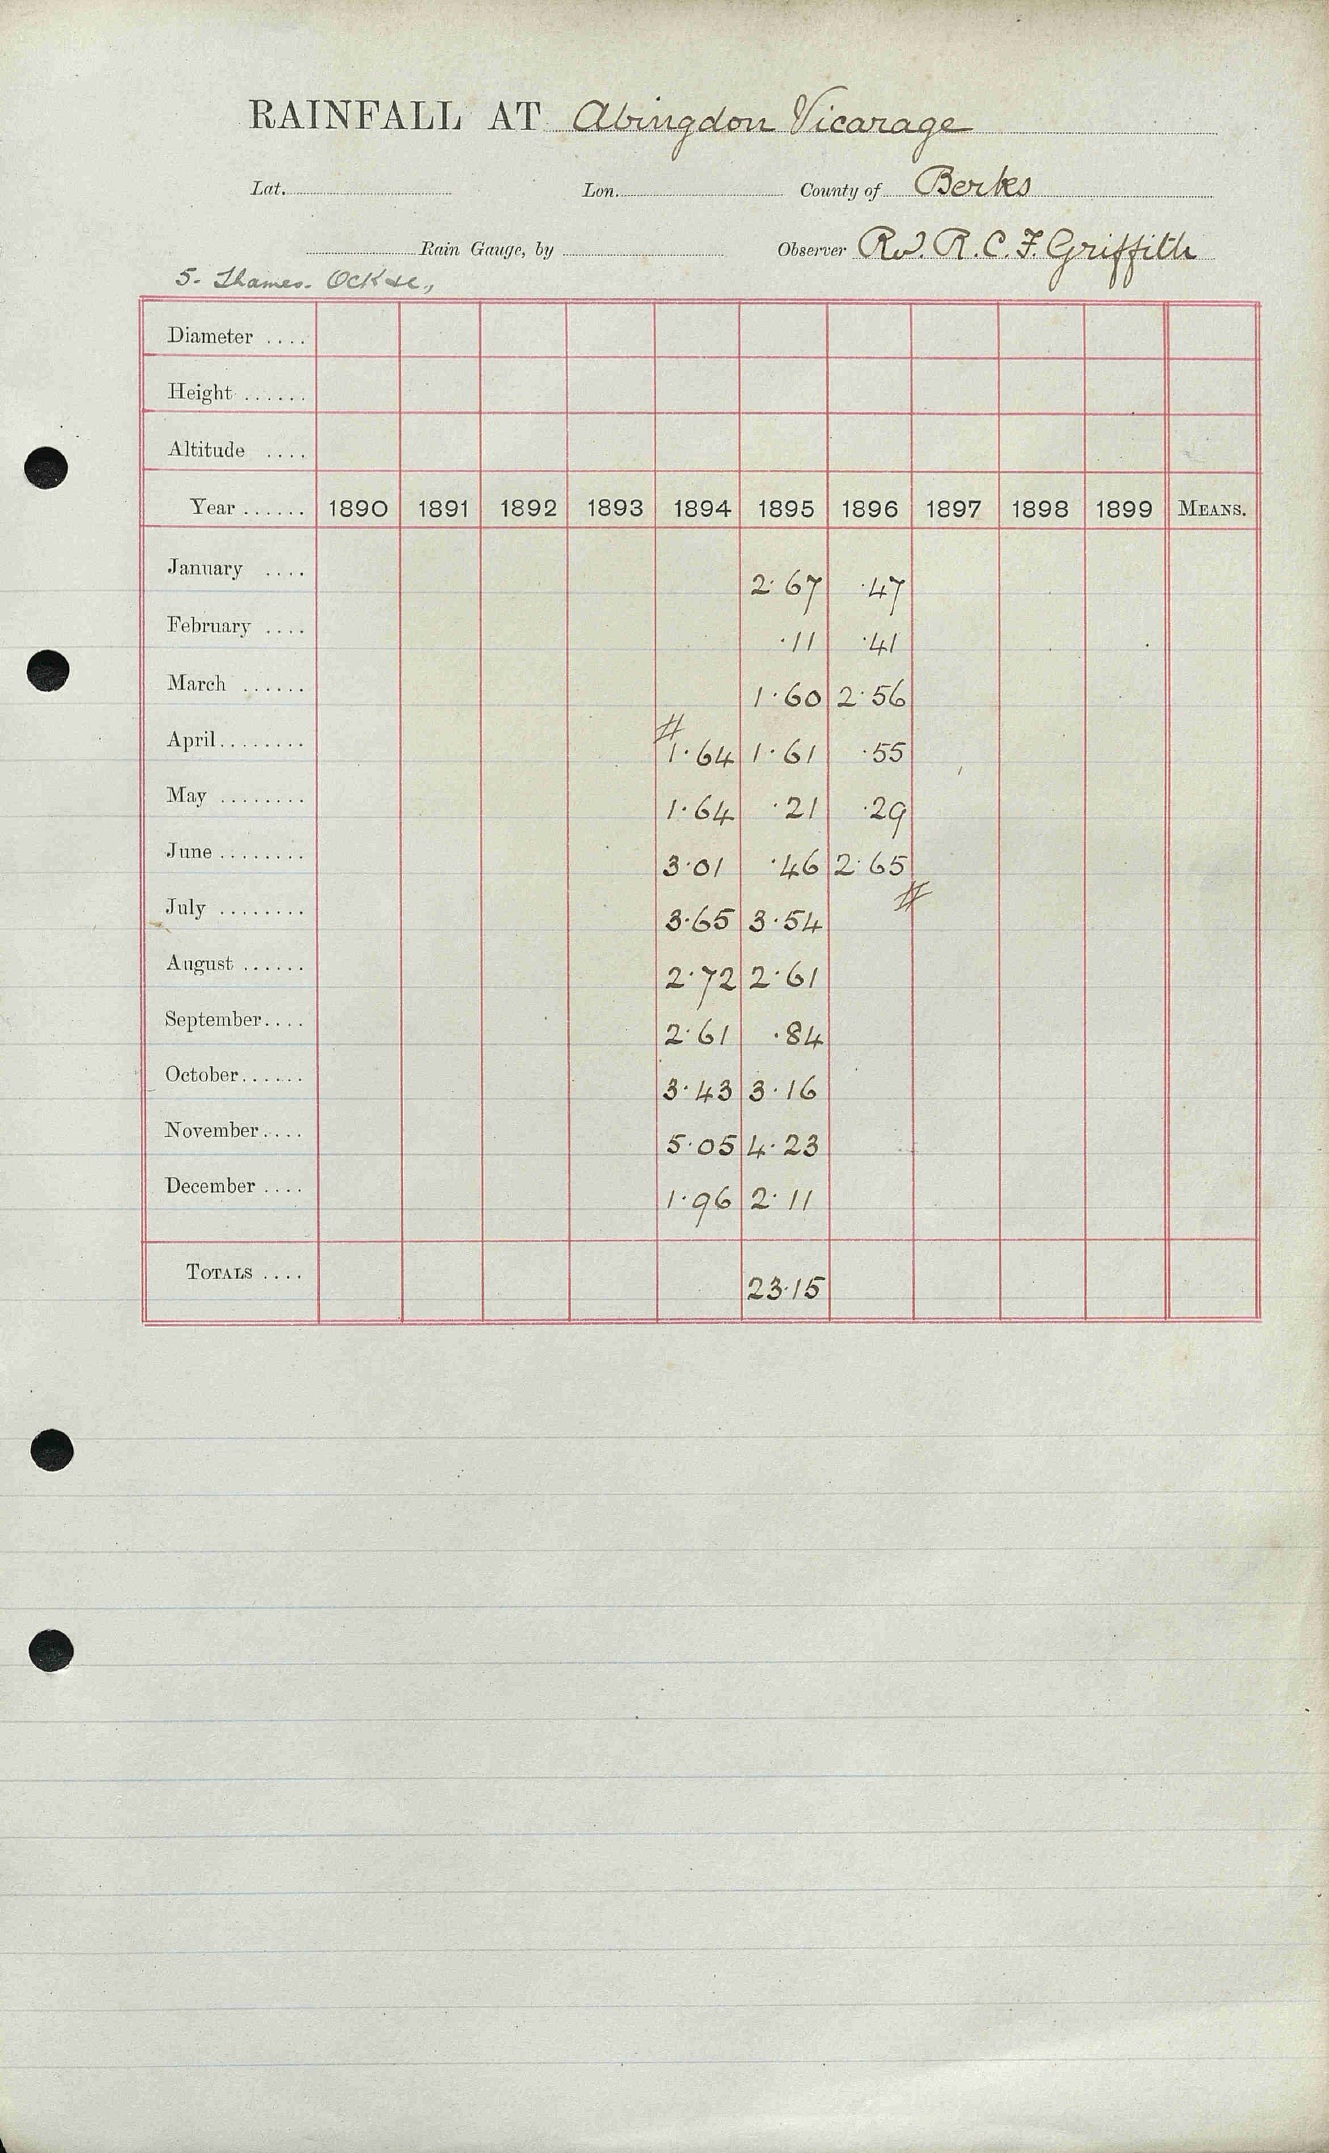 RAINFALL AT Abingdon Vicarage
Lat. Lon. County of Berks
Rain Gauge, by Observer Rev. R. C. F. Griffith
5. Thames. Ock &c.,
Diameter ....
Height ......
Altitude ....
Year ...... 1890 1891 1892 1893 1894 1895 1896 1897 1898 1899 MEANS.
January .... 2.67 .47
February .... .11 .41
March ...... 1.60 2.56
April ........ # 1.64 1.61 .55
May ........ 1.64 .21 .29
June ........ 3.01 .46 2.65
July ........ 3.65 3.54 #
August ...... 2.72 2.61
September.... 2.61 .84
October...... 3.43 3.16
November.... 5.05 4.23
December .... 1.96 2.11
TOTALS .... 23.15